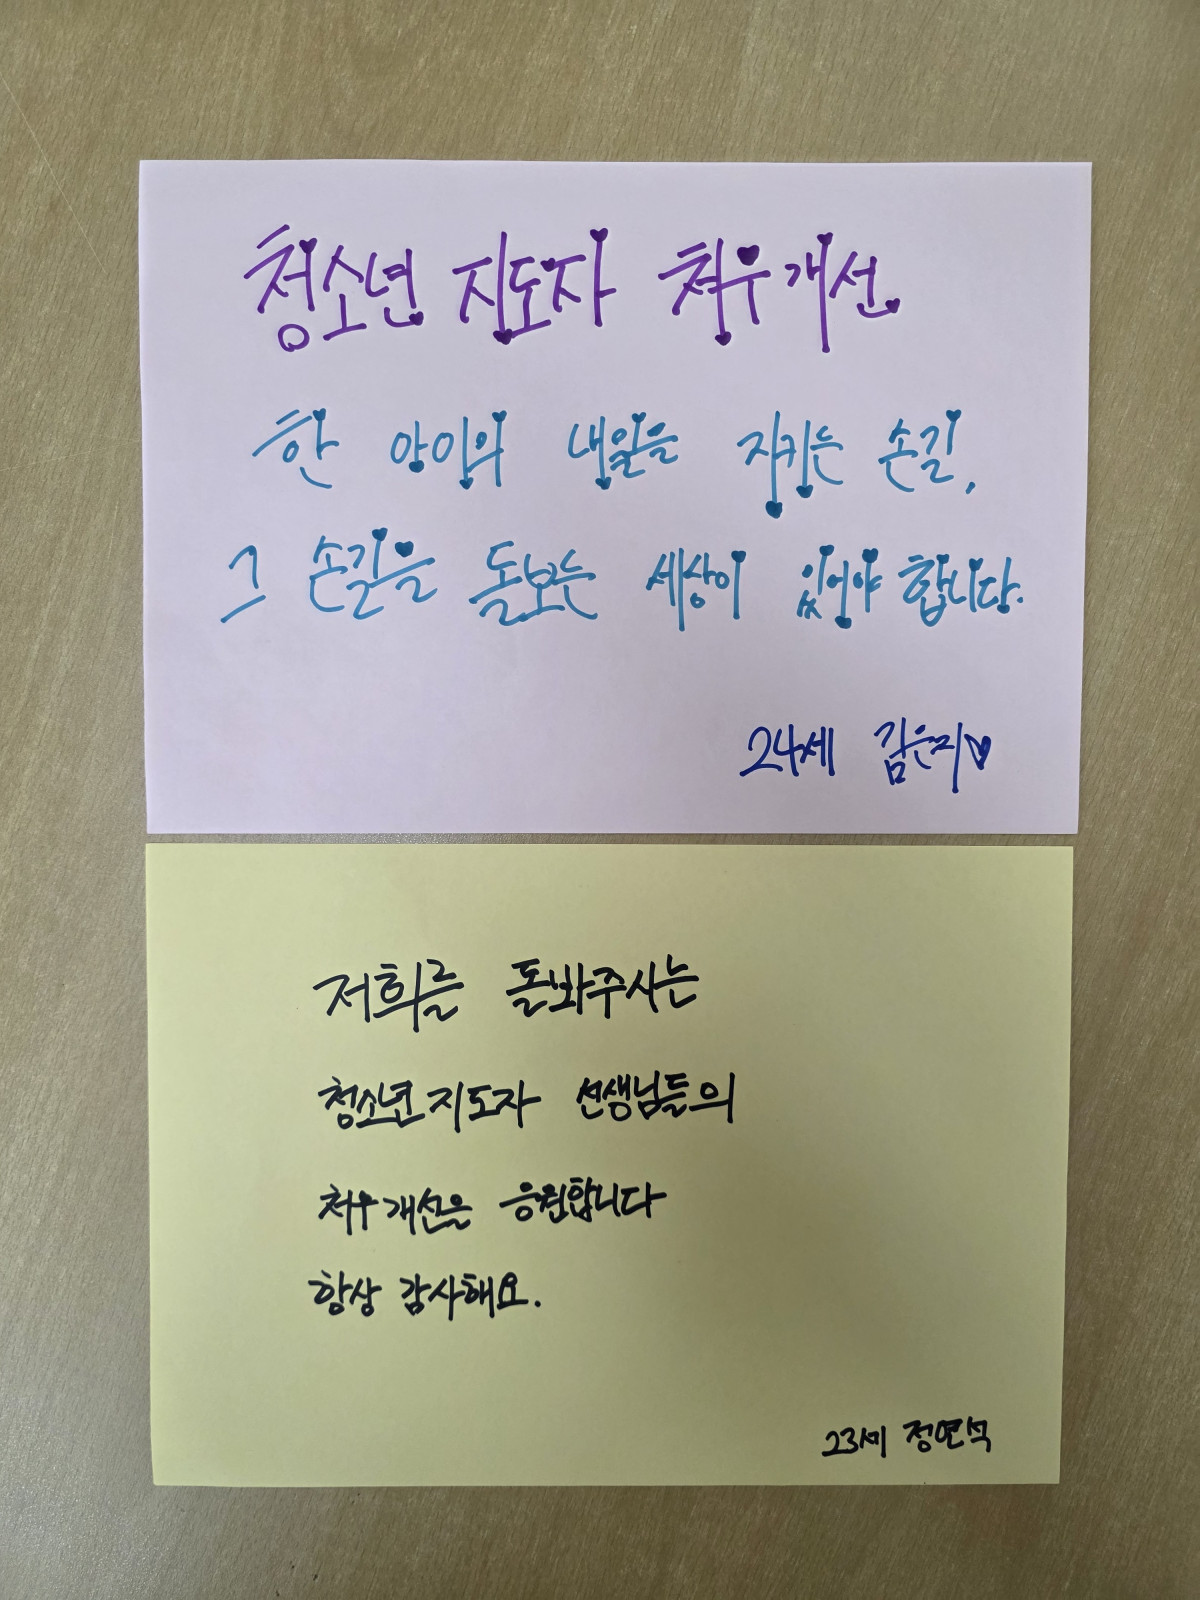 청소년 지도자 처우개선
한 아이의 내일을 지키는 손길,
그 손길을 돌보는 세상이 있어야 합니다.
24세 김은지♡
저희를 돌봐주시는
청소년지도자 선생님들의
처우개선을 응원합니다
항상 감사해요.
23세 정연석